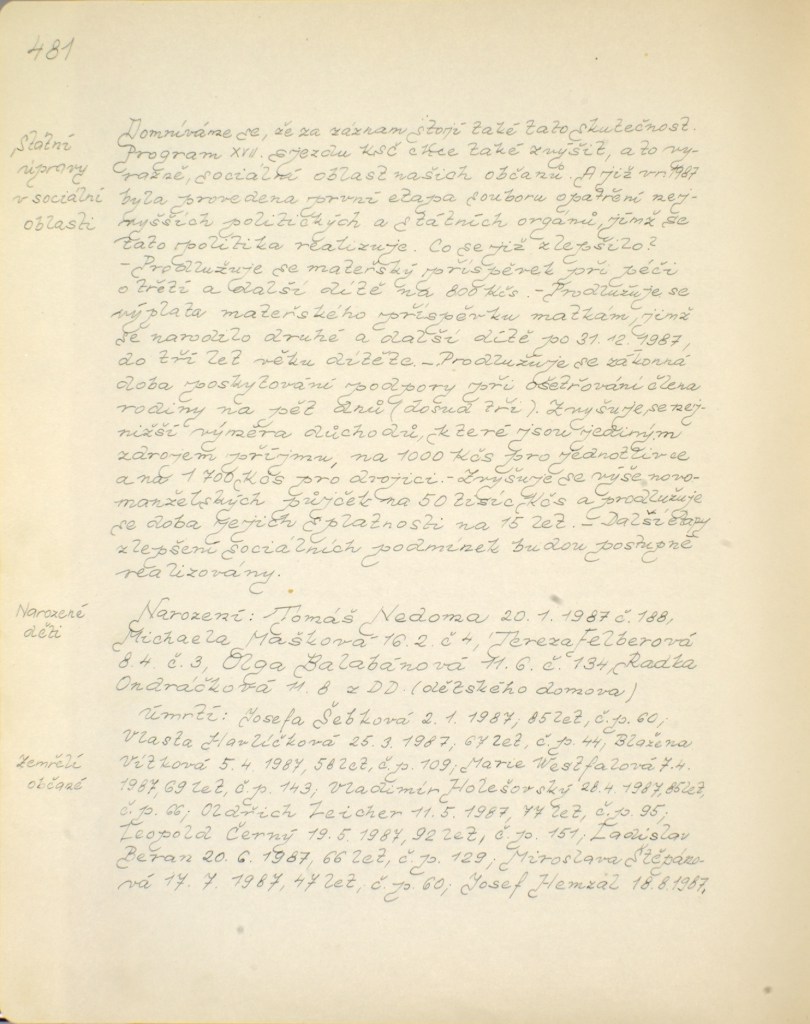 481
Státní
úpravy
v sociální
oblasti
Domníváme se, že za záznam stojí také tato skutečnost.
Program XVII. sjezdu KSČ chce také zvýšit, a to vý-
razně, sociální oblast našich občanů. A již v r. 1987
byla provedena první etapa souboru opatření nej-
vyšších politických a státních orgánů, jímž se
tato politika realizuje. Co se již zlepšilo?
- Prodlužuje se mateřský příspěvek při péči
o třetí a další dítě na 800 Kčs. - Prodlužuje se
výplata mateřského příspěvku matkám, jimž
se narodilo druhé a další dítě po 31. 12. 1987,
do tří let věku dítěte. - Prodlužuje se zákonná
doba poskytování podpory při ošetřování člena
rodiny na pět dnů (dosud tři). Zvyšuje se nej-
nižší výměra důchodů, které jsou jediným
zdrojem příjmu, na 1000 Kčs pro jednotlivce
a na 1 700 Kčs pro dvojici. - Zvyšuje se výše novo-
manželských půjček na 50 tisíc Kčs a prodlužuje
se doba jejich splatnosti na 15 let. - Další etapy
zlepšení sociálních podmínek budou postupně
realizovány.
Narozené
děti
Narození: Tomáš Nedoma 20. 1. 1987 č. 188,
Michaela Mašková 16. 2. č 4, Tereza Felberová
8. 4. č. 3, Olga Balabánová 11. 6. č. 134, Radka
Ondráčková 11. 8 z DD. (dětského domova)
Zemřelí
občané
Úmrtí: Josefa Šebková 2. 1. 1987, 85 let, č. p. 60;
Vlasta Havlíčková 25. 3. 1987, 67 let, č. p. 44, Blažena
Vítková 5. 4. 1987, 58 let, č. p. 109; Marie Westfalová 7. 4.
1987, 69 let, č. p. 143; Vladimír Holešovský 28. 4. 1987, 85 let,
č. p. 66; Oldřich Leicher 11. 5. 1987, 77 let, č. p. 95;
Leopold Černý 19. 5. 1987, 92 let, č. p. 151; Ladislav
Beran 20. 6. 1987, 66 let, č. p. 129; Miroslava Štěpáno-
vá 17. 7. 1987, 47 let, č. p. 60; Josef Hemzál 18. 8. 1987,